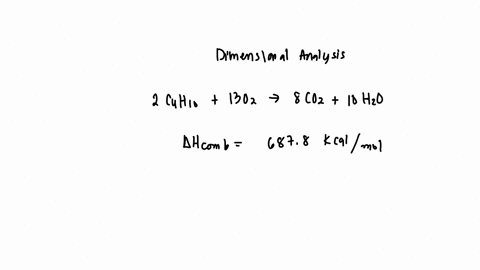 Dimensional Analysis
2 C4H10 + 13O2 → 8CO2 + 10H2O
ΔHcomb = 687.8 kcal/mol